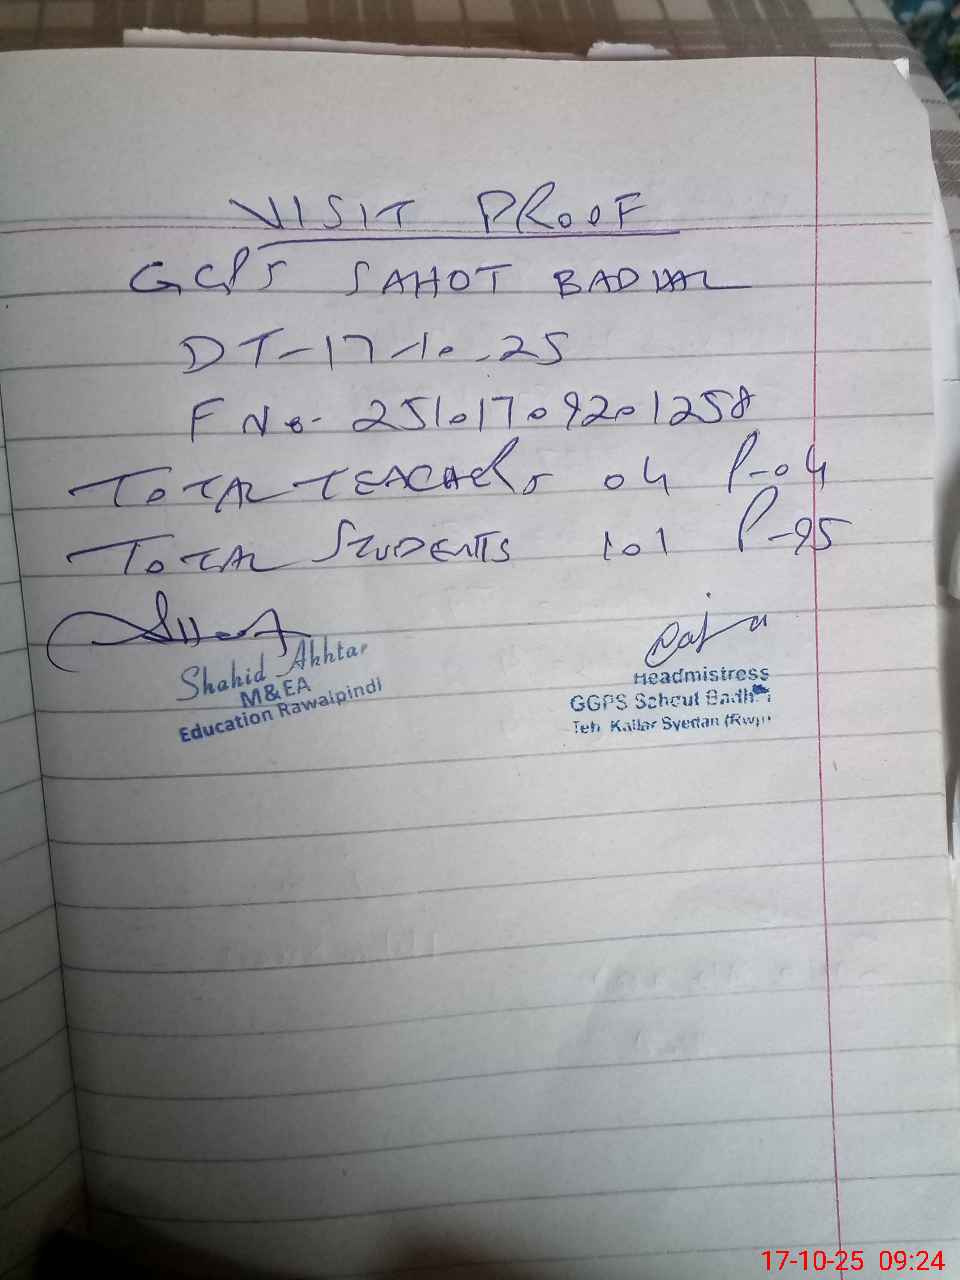 VISIT PROOF
GGPS SAHOT BADHAL
DT-17-10-25
F No- 25101709201258
TOTAL TEACHERS 04 P-04
TOTAL STUDENTS 101 P-95
Shahid Akhtar
M&EA
Education Rawalpindi
Headmistress
GGPS Sahout
Teh Kallar Syedan (Rwp)
17-10-25 09:24